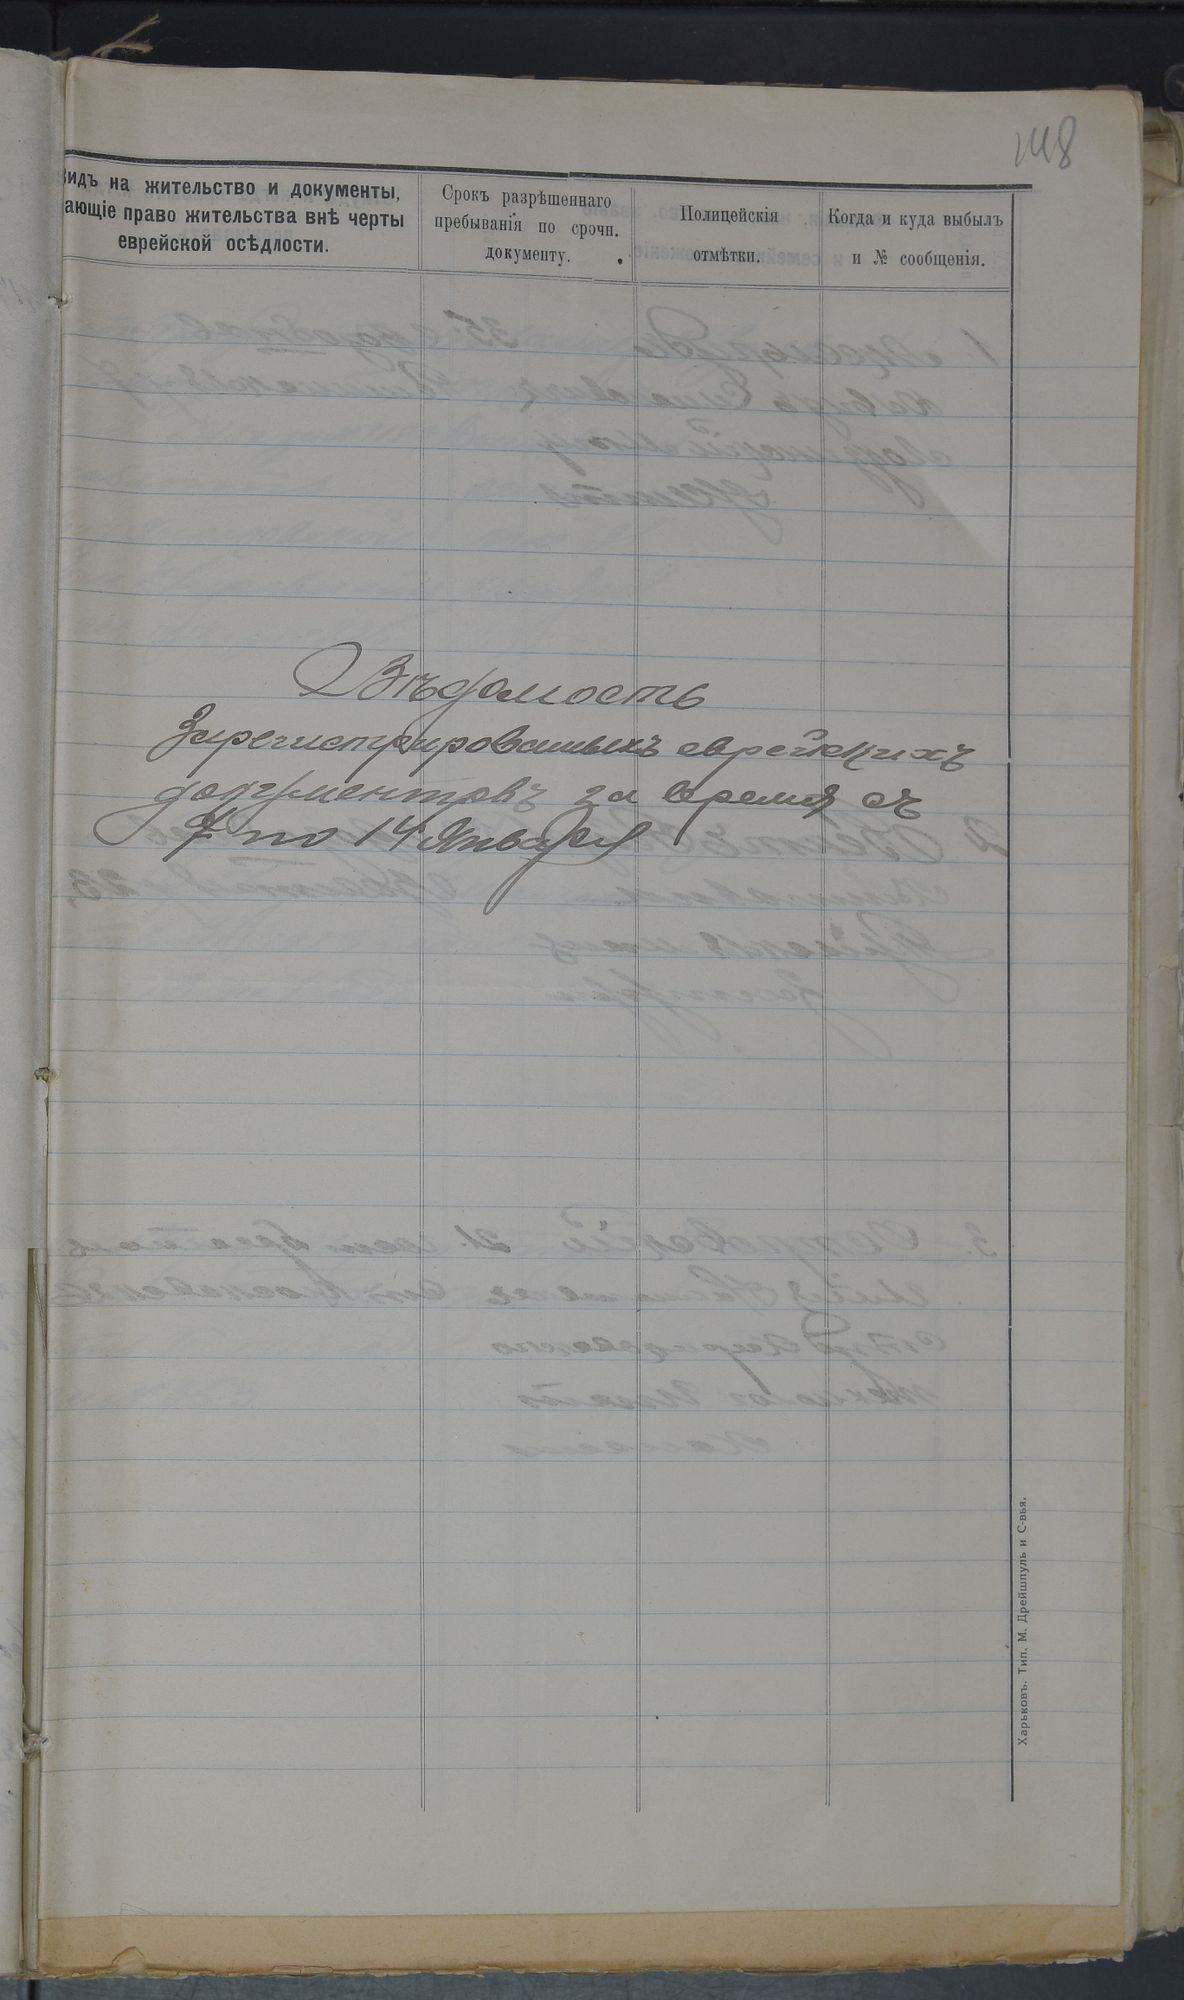 148
Видъ на жительство и документы,
ающіе право жительства внѣ черты
еврейской осѣдлости.
Срокъ разрѣшеннаго
пребыванія по срочн.
документу.
Полицейскія
отмѣтки.
Когда и куда выбылъ
и № сообщенія.
Вѣдомость
Зарегистрированныхъ еврейскихъ
документовъ за время съ
7 по 14 Января
Харьковъ. Тип. М. Дрейшпуль и С-вья.